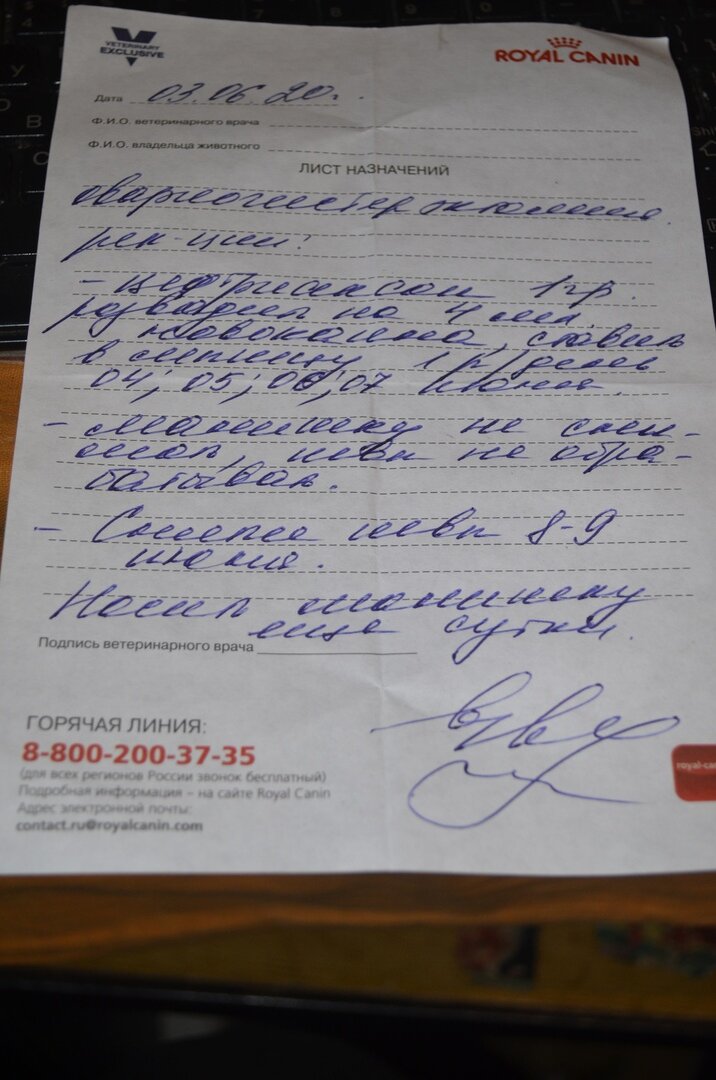 VETERINARY
EXCLUSIVE
ROYAL CANIN
Дата 03.06.20г.
Ф.И.О. ветеринарного врача
Ф.И.О. владельца животного
ЛИСТ НАЗНАЧЕНИЙ
овариогистерэктомия
рек-ции:
- цефтриаксон 1 гр.
разводил на 4 мл
новокаина, ставил
в мышцу 1 р/день
04; 05; 06; 07 июня.
- манишку не сни-
мал, швы не обра-
батывал.
- Снятие швы 8-9
июня.
Носил манишку
еще сутки.
Подпись ветеринарного врача
ГОРЯЧАЯ ЛИНИЯ:
8-800-200-37-35
(для всех регионов России звонок бесплатный)
Подробная информация – на сайте Royal Canin
Адрес электронной почты:
contact.ru@royalcanin.com